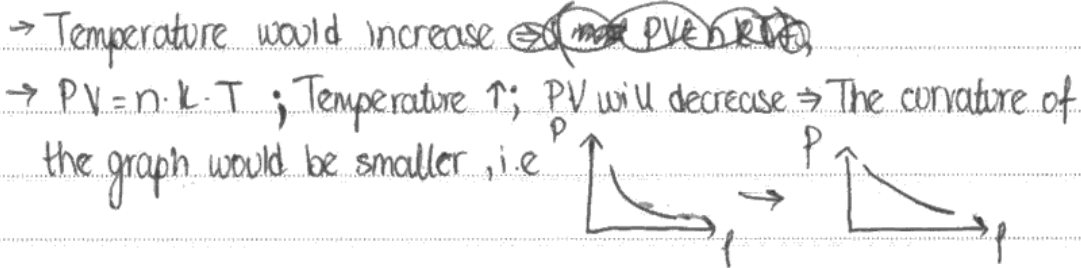 → Temperature would increase ⇒
→ PV = n·k·T ; Temperature ↑; PV will decrease ⇒ The curvature of
the graph would be smaller, i.e
P → P
l l